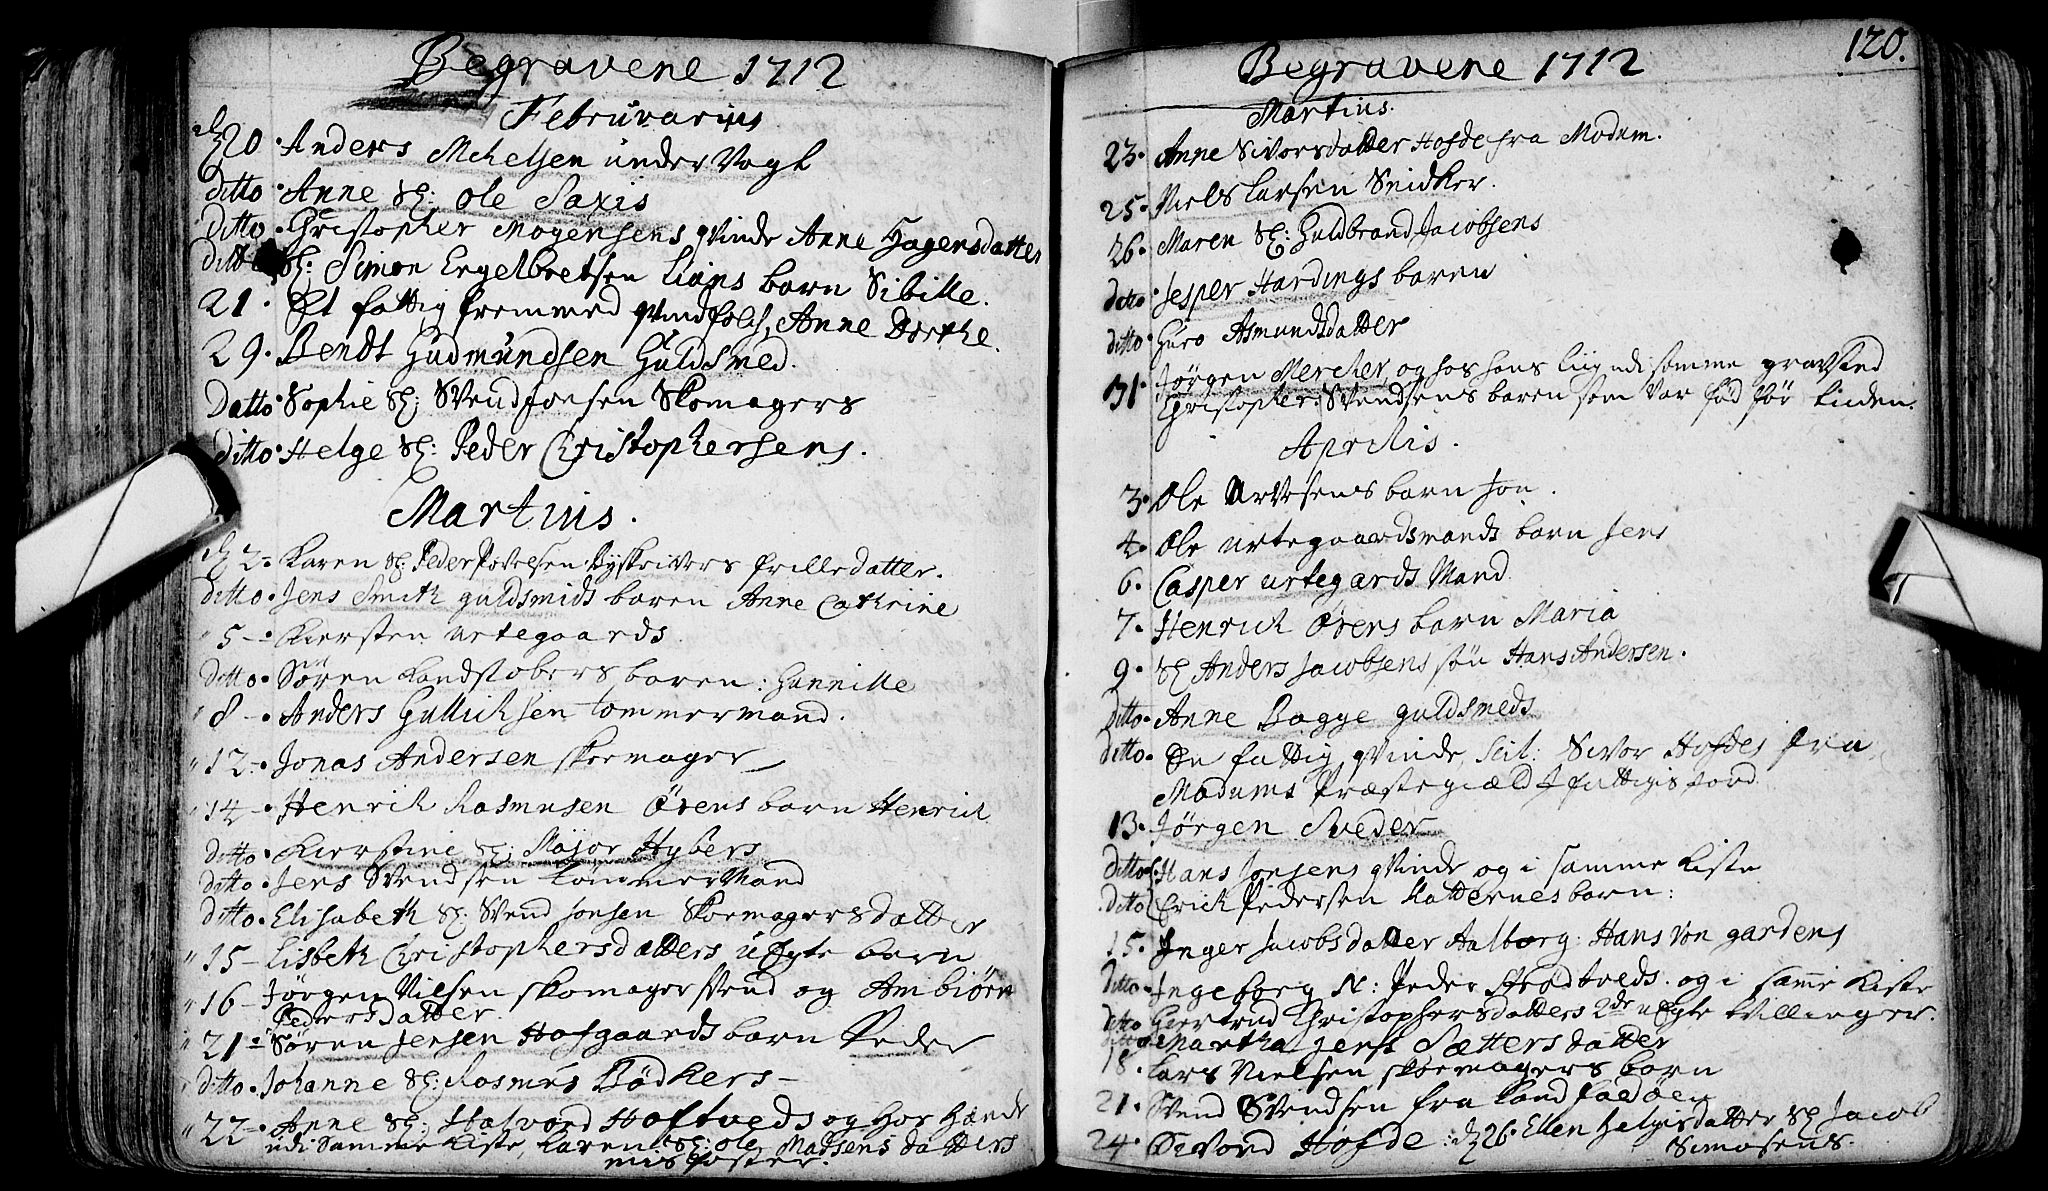 Begravene 1712
Februvarius
d 20. Anders Mchelsen under Vogt
ditto. Anne Sl: Ole Saxis
ditto. Christopher Mogensens qvinde Anne Hagensdatter
ditto Sl: Simon Engelbretsen Liøns barn Sibille.
21. Et fattig fremmed qvindfolch, Anne Dorthe.
29. Bendt Gudmundsen Guldsmed.
Datto. Sophie Sl: Svend Jonsen Skomagers
ditto. Helge Sl: Peder Christophersens.
Martius.
d 2. Karen Sl: Peder Povelsen Byskrivers frille datter.
ditto. Jens Smith guldsmids baren Anne Cathrine
" 5 -. Kiersten urtegaards
ditto. Søren Landstobers baren: Hannille
" 8 -. Anders Gullichsen tommermand.
" 12 -. Jonas Andersen skoemager
" 14 -. Henrik Rasmusen Ørens barn Henrich
ditto. Kierstine Sl: Major Hybers
ditto. Jens Svendsen tømmerMand
ditto. Elisabeth Sl. Svend Jonsen Skoemagers datter
" 15 - Lisbeth Christophersdatters uEgte barn
" 16 - Jørgen Nilsen skomager svend og Ambiørn
Pedersdatter.
" 21 - Søren Jensen Hofgaards barn Peder
ditto. Johanne Sl: Rasmus Bødkers -
" 22 -. Anne Sl: Halvord Hoftveds og hos Hende
udi Samme Kiste, Karen Sl: Ole Madsens datters
misfoster.
Begravene 1712
120.
Martius.
23. Anne Sivorsdatter Hofde fra Modum.
25. Niels Larsen Snidker.
26. Maren Sl: Guldbrand Jacobsens
ditto. Jesper Hardings baren
ditto. Guro Asmundsdatter
31. Jørgen Mercker, og hos hans liig udi samme grav sted
Christopher Svendsens baren som var fød før tiden.
Aprilis.
3. Ole Arvesens barn Jon.
4. Ole urtegaardsmands barn Jens
6. Casper urtegards Mand
7. Henrich Ørens barn Maria
9. Sl Anders Jacobsens søn Hans Andersen.
ditto. Anne Bagge guldsmeds
ditto. En fattig qvinde, Scil: Sivor Hofdes fra
Modums Præstegiæld J fattigis Jord
13. Jørgen Sveder
ditto. Hans Jonsens qvinde og i samme Kiste
ditto Erich Pedersen Ratternes barn:
15. Inger Jacobsdatter Aalborg: Hans von gardens
ditto. Ingeborg Sl: Peder Strødtveds. og i samme Kiste
ditto Giertrud Christophersdatters 2de uEgte tvillinger.
ditto Martha Jens Sætters datter
18. Lars Nielsen skoemagers barn
21. Svend Svendsen fra Landfaldøen
24. Sivord Hofde: d 26. Ellen Helgisdatter Sl Jacob
Simosens.